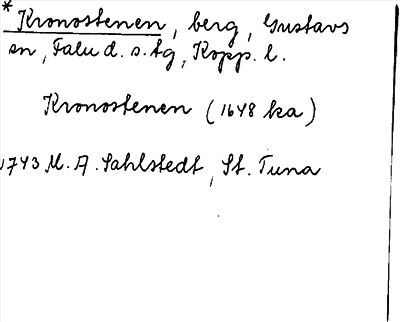 * Kronostenen, berg, Gustavs
sn, Falu d. s. tg, Kopp. l.
Kronostenen (1648 ka)
1743 M. A. Sahlstedt, St. Tuna